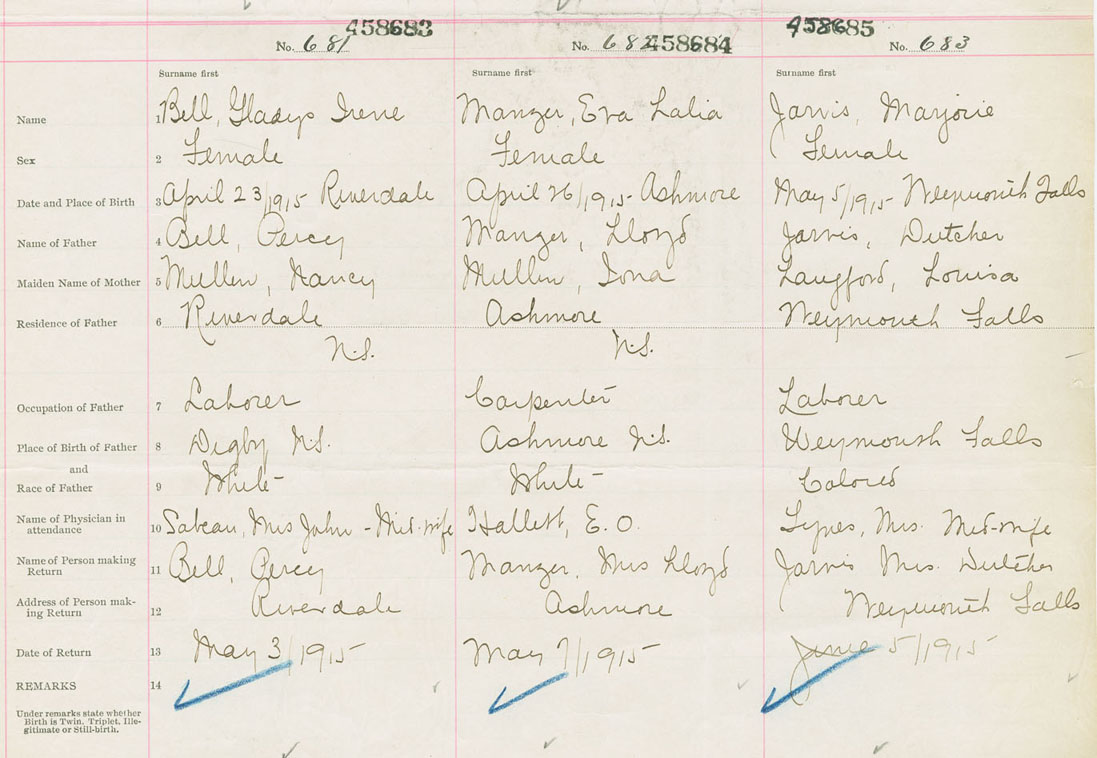 458683 458684 458685
No. 681 No. 682 No. 683
Surname first Surname first Surname first
Name 1 Bell, Gladys Irene Manzer, Eva Lalia Jarvis, Marjorie
Sex 2 Female Female Female
Date and Place of Birth 3 April 23/1915 Riverdale April 26/1915 Ashmore May 5/1915 Weymouth Falls
Name of Father 4 Bell, Percy Manzer, Lloyd Jarvis, Dutcher
Maiden Name of Mother 5 Mullen, Nancy Mullen, Iona Langford, Louisa
Residence of Father 6 Riverdale Ashmore Weymouth Falls
N.S. N.S.
Occupation of Father 7 Laborer Carpenter Laborer
Place of Birth of Father 8 Digby N.S. Ashmore N.S. Weymouth Falls
and
Race of Father 9 White White Colored
Name of Physician in
attendance 10 Sabean, Mrs John - Mid-wife Hallett, E. O. Mrs. Mid-wife
Name of Person making
Return 11 Bell, Percy Manzer, Mrs Lloyd Jarvis Mrs. Dutcher
Address of Person mak-
ing Return 12 Riverdale Ashmore Weymouth Falls
Date of Return 13 May 3/1915 May 7/1915 June 5/1915
REMARKS 14
Under remarks state whether
Birth is Twin, Triplet, Ille-
gitimate or Still-birth.